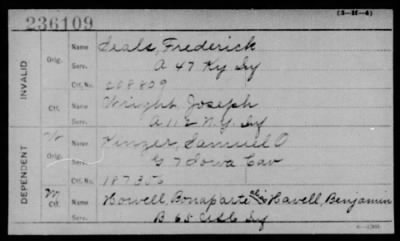 236109
(3-H-4)
INVALID
Orig. Name Seals, Frederick
Serv. A 47 Ky Inf
Ctf. No. 208809
Ctf. Name Wright, Joseph
Serv. A 112 N.Y. Inf
DEPENDENT
W Orig. Name Kinzer, Samuel O
Serv. G 7 Iowa Cav
Ctf. No. 187356
M Ctf. Name Bowell, Bonaparte Havell, Benjamin
Serv. B 65 Inf